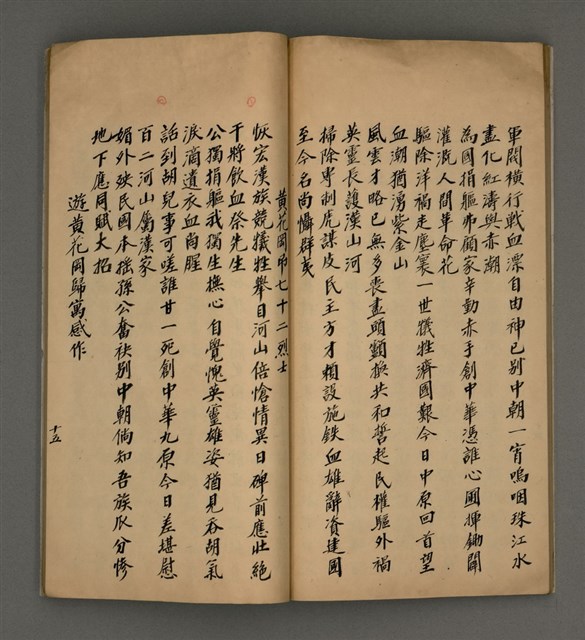 軍閥橫行戰血漂自由神已別中朝一宵嗚咽珠江水
盡化紅濤與赤潮
為國捐軀弗顧家辛勤赤手創中華憑誰心圃揮鋤闢
灌溉人間革命花
驅除洋禍走塵寰一世犧牲濟國艱今日中原回首望
血潮猶湧紫金山
風雲才略已無多喪盡頭顱換共和誓起民權驅外禍
英靈長護漢山河
掃除專制虎謀皮民主方才賴設施鉄血雄辭資建國
至今名尚懾群夷
黃花岡吊七十二烈士
恢宏漢族競犧牲舉目河山倍愴情異日碑前應壯絕
干將飲血祭先生
公獨捐軀我獨生撫心自覺愧英靈雄姿猶見吞胡氣
淚滴遺衣血尚腥
話到胡兒事可嗟誰甘一死創中華九原今日差堪慰
百二河山屬漢家
媚外殃民國本搖孫公奮袂別中朝倘知吾族瓜分慘
地下應同賦大招
遊黃花岡歸寓感作
十五